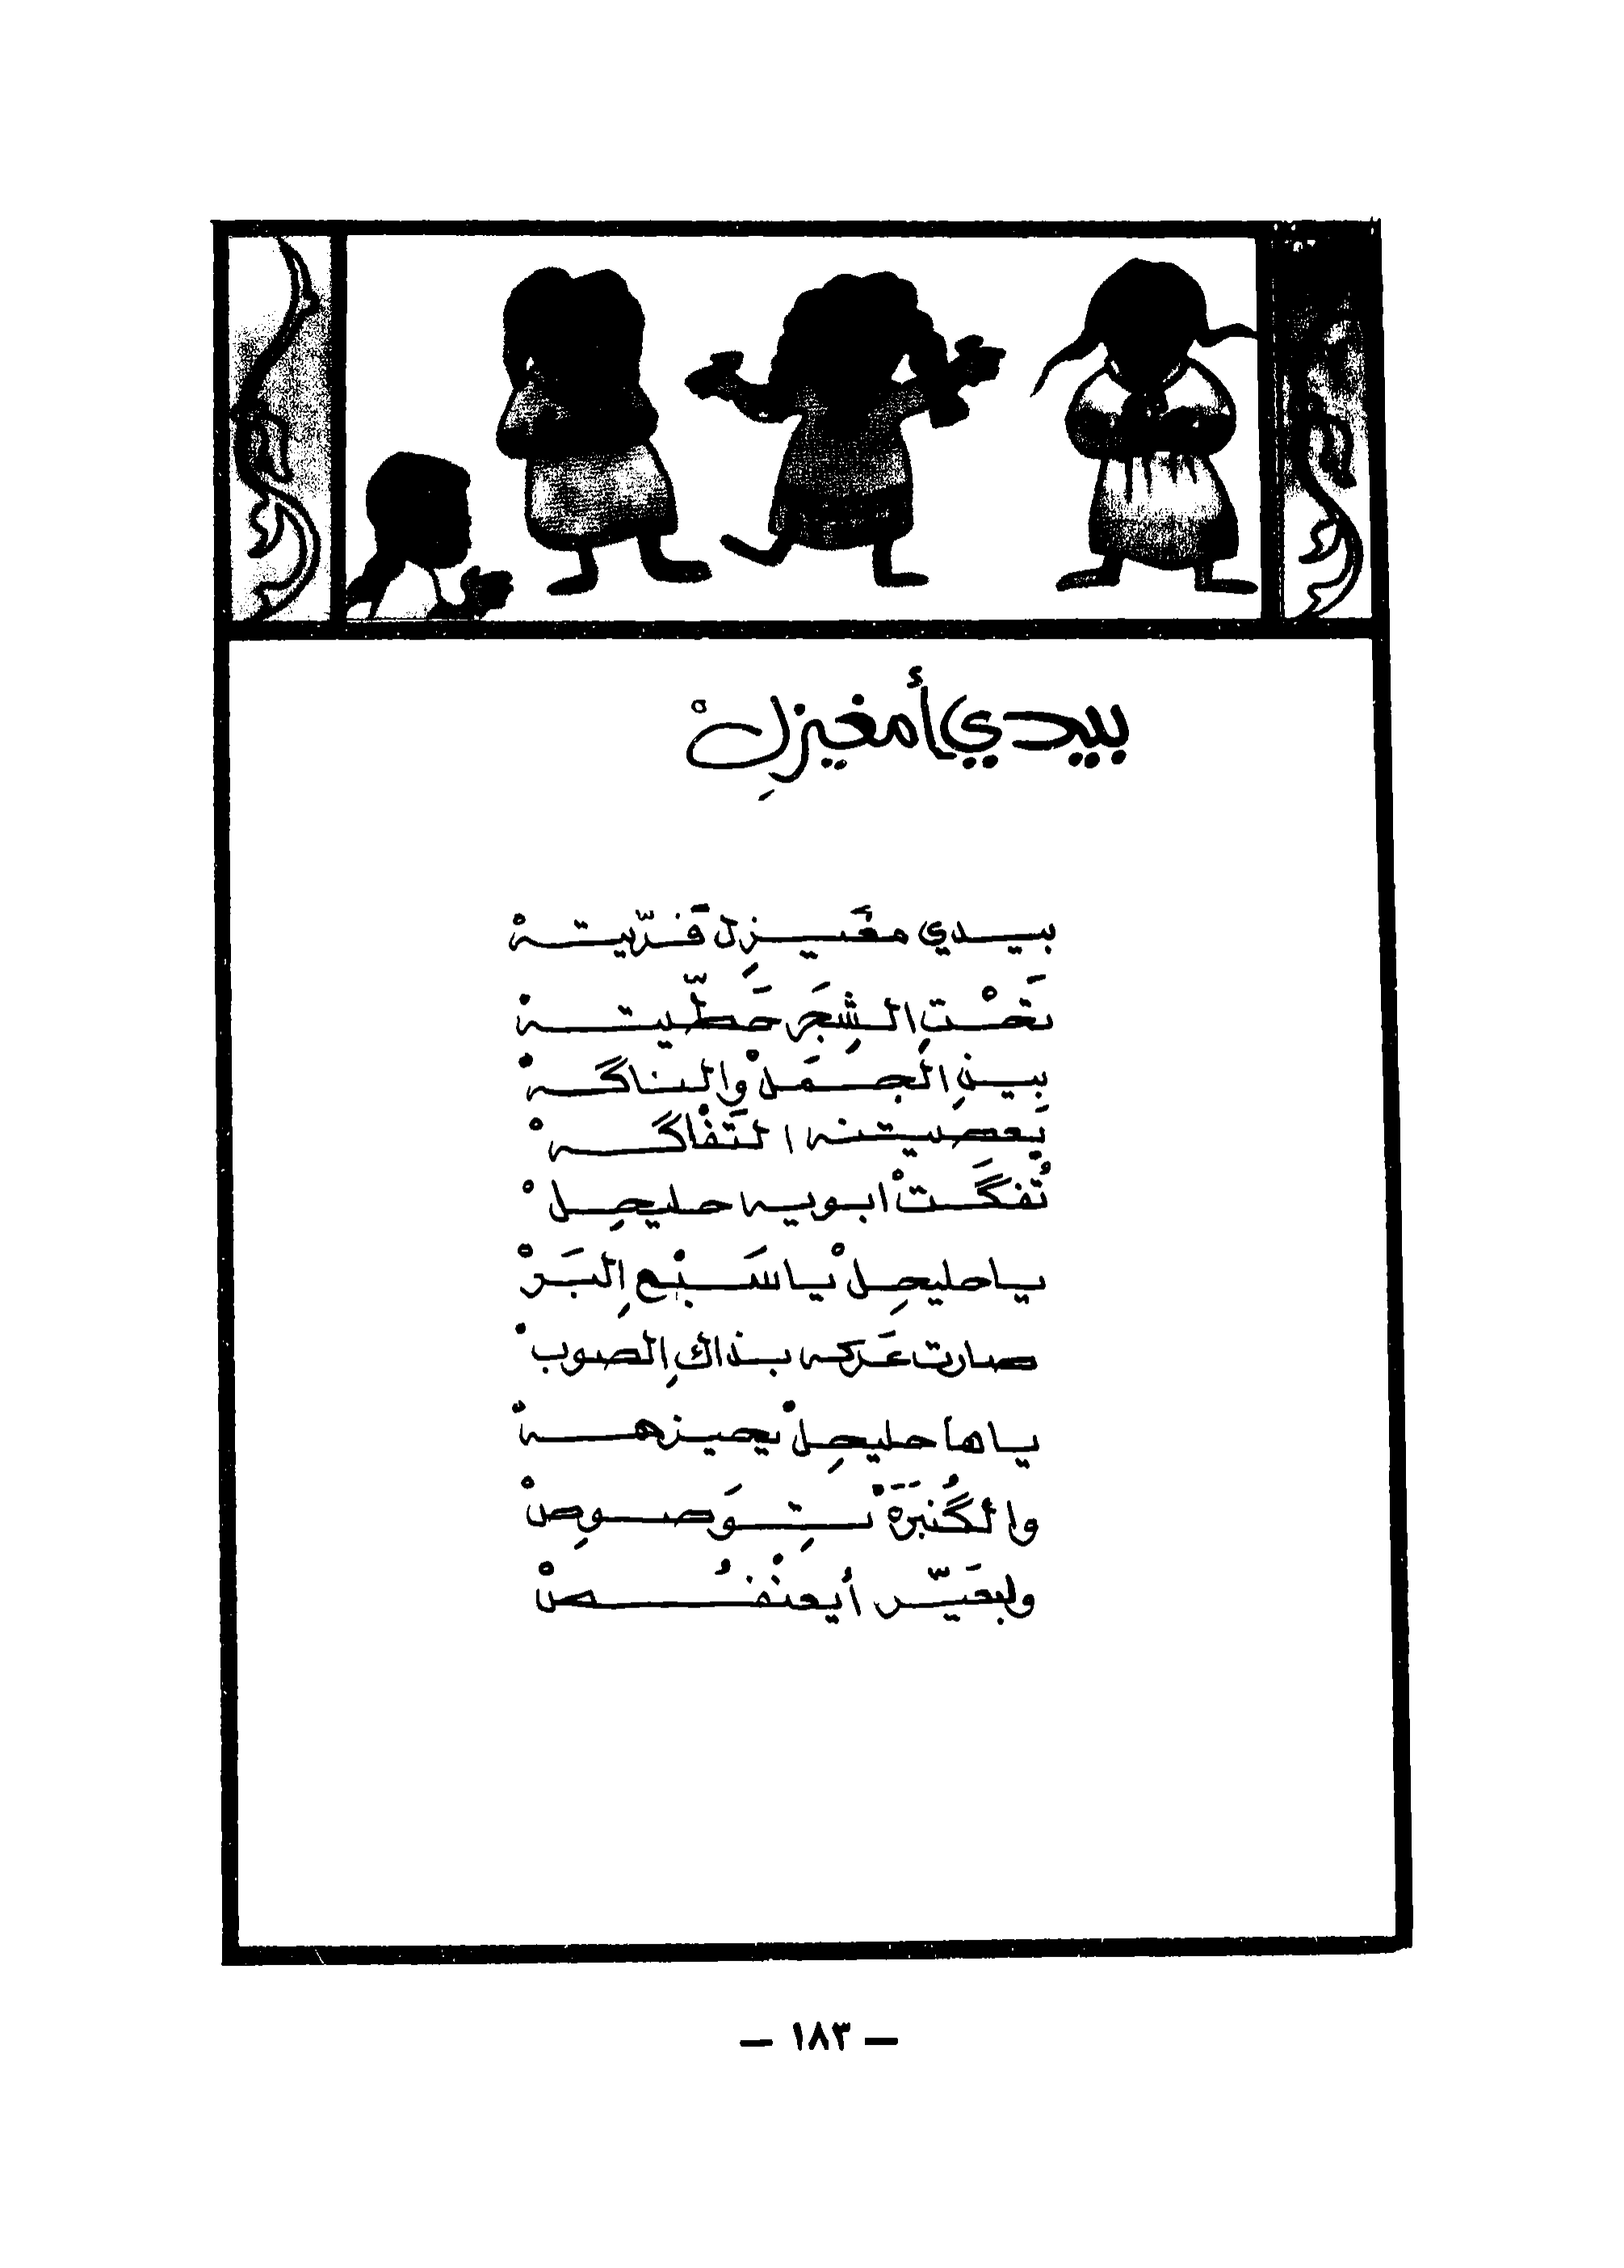 بيدي أمغيزِلْ
بيدي مغَيزِل فَرّيتهْ
تَحْتِ الشِجَر حَطّيتهْ
بينِ الجمَلْ والناگهْ
يَعصيتنه التَفْاگهْ
تُفگَتْ ابويه حليحِلْ
يا حليحِلْ يا سَبْع إلبَرْ
صارت عَركه بذاكِ الصوبْ
يا ها حليحِلْ يحيزههْ
والگُنبَرَهْ تِوَصوِصْ
ولبعَيّر أيعنْفُصْ
— ١٨٣ —